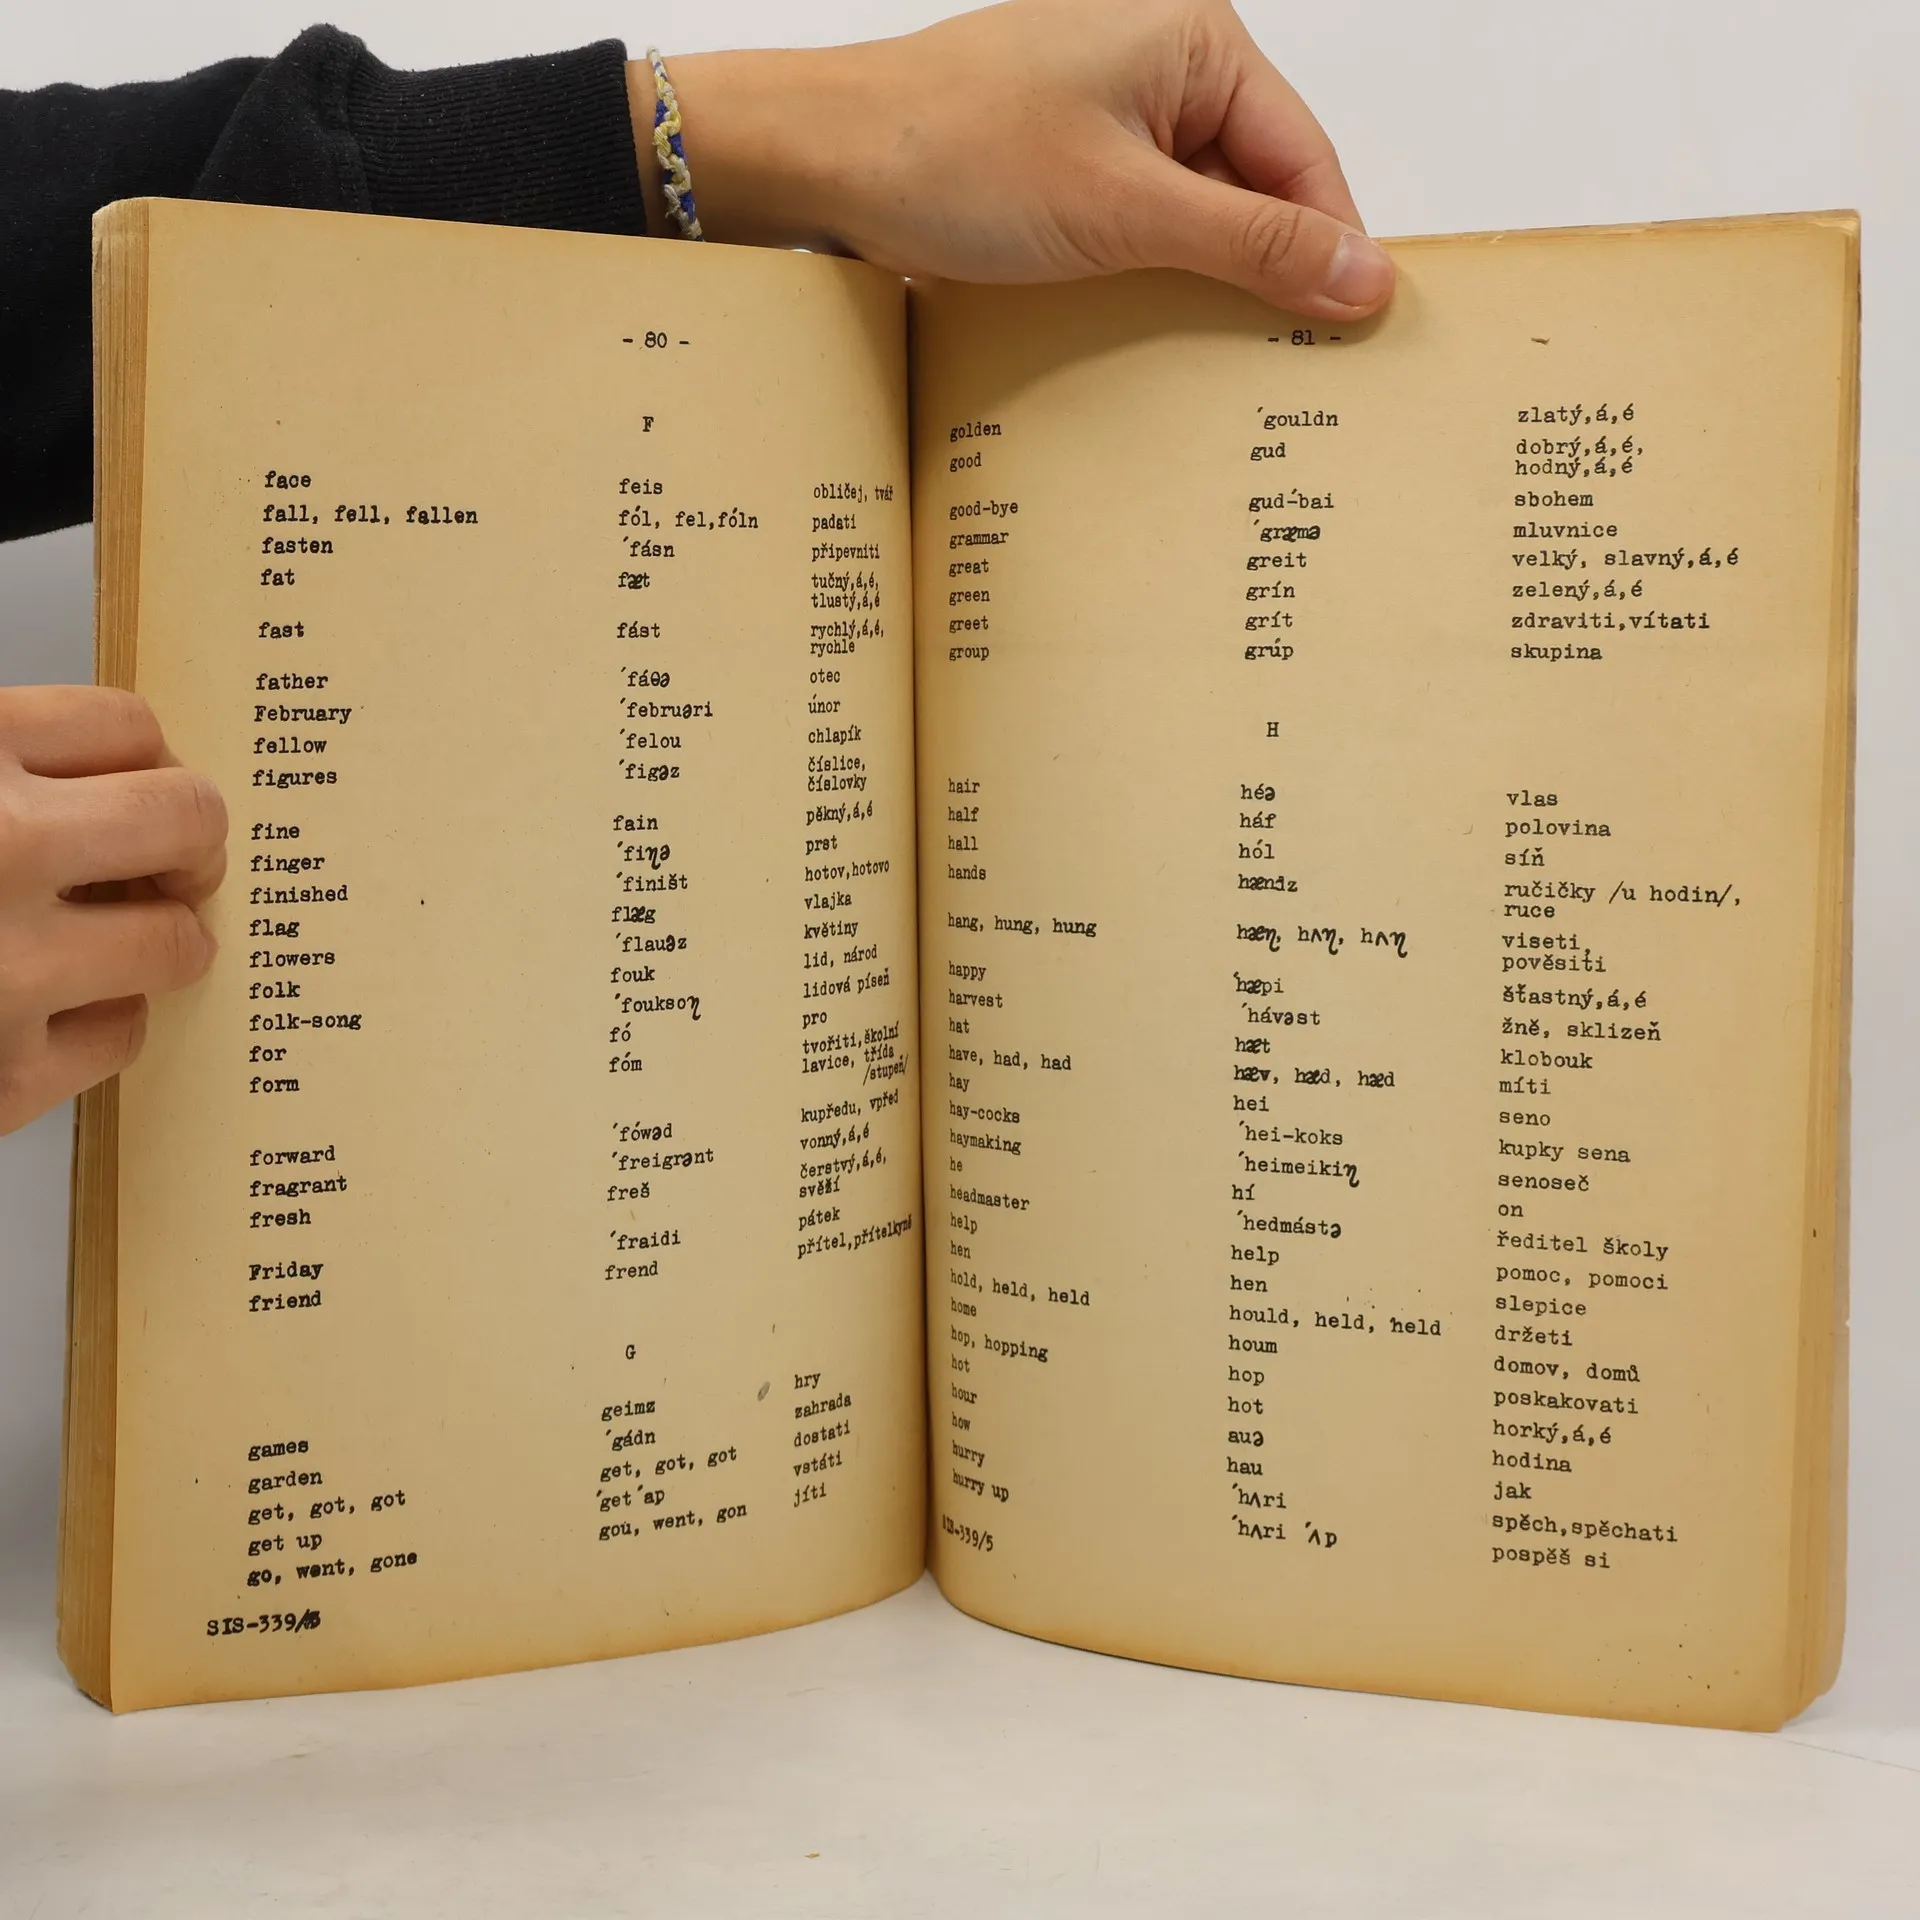 - 80 -
F
face feis obličej, tvář
fall, fell, fallen fól, fel,fóln padati
fasten ´fásn připevniti
fat fæt tučný,á,é,
tlustý,á,é
fast fást rychlý,á,é,
rychle
father ´fáθə otec
February ´februəri únor
fellow ´felou chlapík
figures ´figəz číslice,
číslovky
fine fain pěkný,á,é
finger ´fiŋə prst
finished ´finišt hotov,hotovo
flag flæg vlajka
flowers ´flauəz květiny
folk fouk lid, národ
folk-song ´fouksoŋ lidová píseň
for fó pro
form fóm tvořiti,školní
lavice, třída
/stupeň/
forward ´fówəd kupředu, vpřed
fragrant ´freigrənt vonný,á,é
fresh freš čerstvý,á,é,
svěží
Friday ´fraidi pátek
friend frend přítel,přítelkyně
G
games geimz hry
garden ´gádn zahrada
get, got, got get, got, got dostati
get up ´get ´ap vstáti
go, went, gone gou, went, gon jíti
SIS-339/5
- 81 -
golden ´gouldn zlatý,á,é
good gud dobrý,á,é,
hodný,á,é
good-bye gud-´bai sbohem
grammar ´græmə mluvnice
great greit velký, slavný,á,é
green grín zelený,á,é
greet grít zdraviti,vítati
group grúp skupina
H
hair héə vlas
half háf polovina
hall hól síň
hands hændz ručičky /u hodin/,
ruce
hang, hung, hung hæŋ, hʌŋ, hʌŋ viseti,
pověsiti
happy ´hæpi šťastný,á,é
harvest ´hávəst žně, sklizeň
hat hæt klobouk
have, had, had hæv, hæd, hæd míti
hay hei seno
hay-cocks ´hei-koks kupky sena
haymaking ´heimeikiŋ senoseč
he hí on
headmaster ´hedmástə ředitel školy
help help pomoc, pomoci
hen hen slepice
hold, held, held hould, held, held držeti
home houm domov, domů
hop, hopping hop poskakovati
hot hot horký,á,é
hour auə hodina
how hau jak
hurry ´hʌri spěch,spěchati
hurry up ´hʌri ´ʌp pospěš si
SIS-339/5